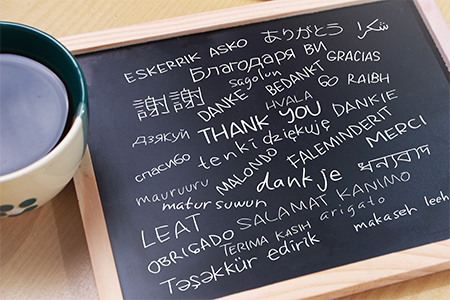 ESKERRIK ASKO ありがとう شكرا
Благодаря ВИ GRACIAS
sagolun BEDANKT GO RAIBH
謝謝 DANKE HVALA
дзякуй THANK YOU DANKIE
спасибо tenki dziękuję FALEMINDERIT
mauruuru MALONDO MERCI
matur suwun dank je ধন্যবাদ
LEAT SALAMAT KANIMO
OBRIGADO TERIMA KASIH arigato makaseh leeh
Təşəkkür edirik